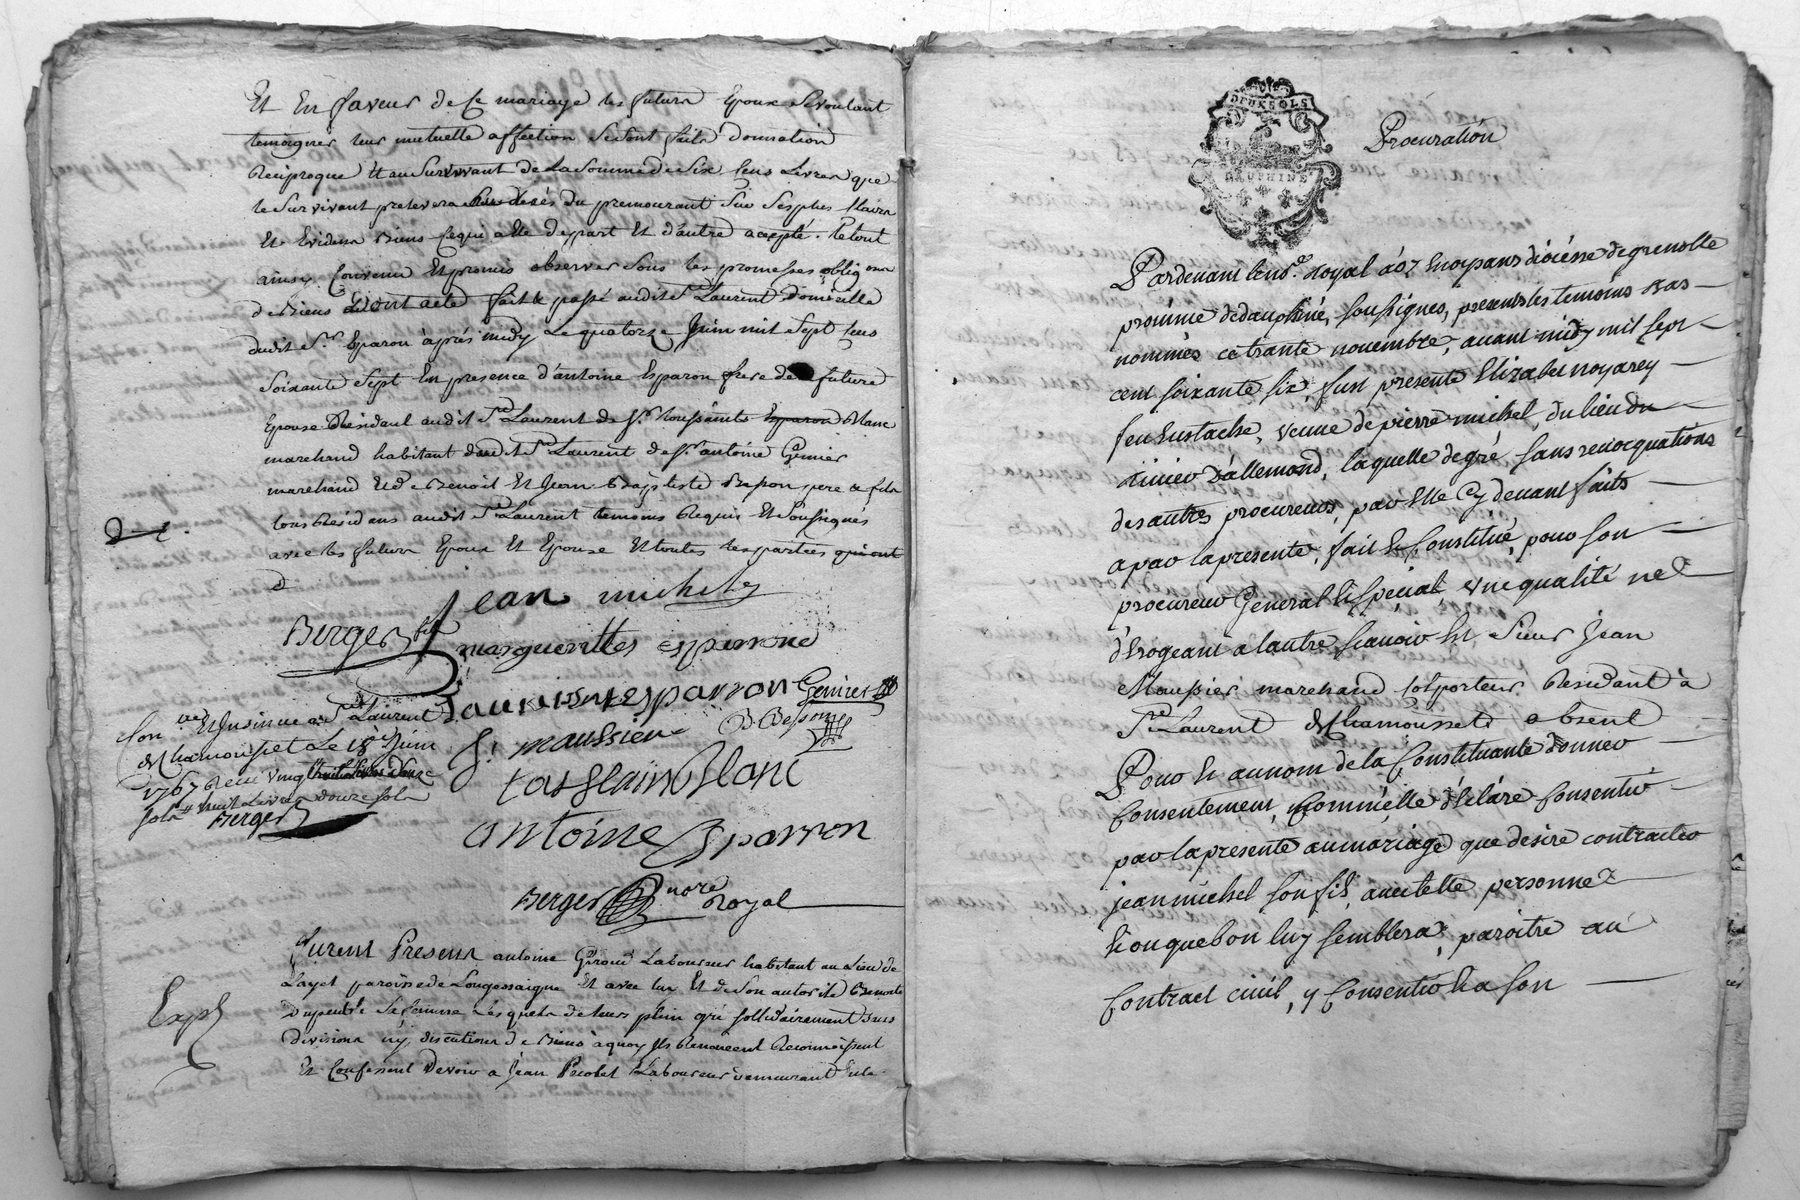 Et En faveur de Ce mariage les futurs Epoux Se voulant
temoigner leur mutuelle affection Se Sont faits donnation
Reciproque Et au Survivant de La Somme de Six Cens Livres que
le Survivant prelevera du premourant Sur Ses plus Clairs
Et Evidens Biens Ce qui a Eté de part Et d'autre accepté. Le tout
ainsy Convenu Et promis observer Sous les promesses oblig.ons
de Biens dont acte fait & passé audit St Laurent domicille
dudit Sr. Esparon après midy Le quatorze Juin mil Sept Cens
Soixante Sept En presence d'antoine Esparon frere de la future
Epouse Residant audit St Laurent de Sr. Toussaints Blanc
marchand habitant dudit St Laurent de Sr. antoine Genier
marchand Et de Benoit Et Jean Baptiste pere & fils
tous Residans audit St Laurent temoins Requis Et Soussignés
avec les futurs Epoux Et Epouse Et toutes les parties
jean michel
Berger fils
margueritte esparrone
esparron Genier
J. maussier B.
Con.lé Et Insinué a St Laurent
de Chamousset Le 18e Juin
1767 Recu vingt
huit Livres douze Sols
Berger
toussaint Blanc
antoine Esparron
Berger nore
Royal
Exp.
furent Presens antoine Giroud Laboureur habitant au Lieu de
Layet paroisse de Longessaigne Et avec luy Et de Son autorité Benoite
Sa femme Lesquels de leurs plein gré sollidairement Sans
division ny discution de Biens a quoy Ils Renoncent Reconnoissent
Et Confessent devoir a Jean Laboureur demeurant
DEUX SOLS
DAUPHINE
Procuration
Pardevant le no.re Royal à oz En oysans diocèse de grenoble
province de dauphiné, soussignes, presents les temoins bas
nommés ce trante novembre, avant midy mil sept
cent soixante six, fust presente Elizabet noyarey
feu Eustache, veuve de pierre michel, du lieu du
d'allemond, laquelle de gré, sans revocquations
des autres procureurs, par Elle Cy devant faits
a par la presente, fait & Constitué, pour son
procureur General & special, une qualité ne
d'erogeant a lautre scavoir Est, Sieur Jean
Maussier marchand Colporteur Residant à
St Laurent de Chamousset absent
Pour Et au nom de la Constituante donner
Consentement, Comme Elle déclare Consentir
par la presente au mariage que desire contracter
jean michel son fils, avec telle personne
Et ou que bon luy semblera, paroitre au
Contract civil, y Consentir Et a son